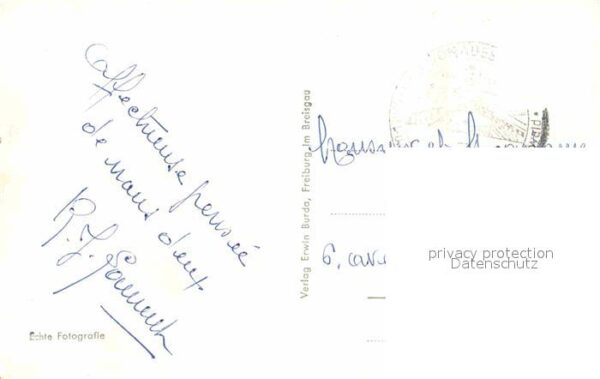 affectueuse pensée
de nous deux
R.J.
Echte Fotografie
Verlag Erwin Burda, Freiburg im Breisgau
Monsieur et
6. av
privacy protection
Datenschutz